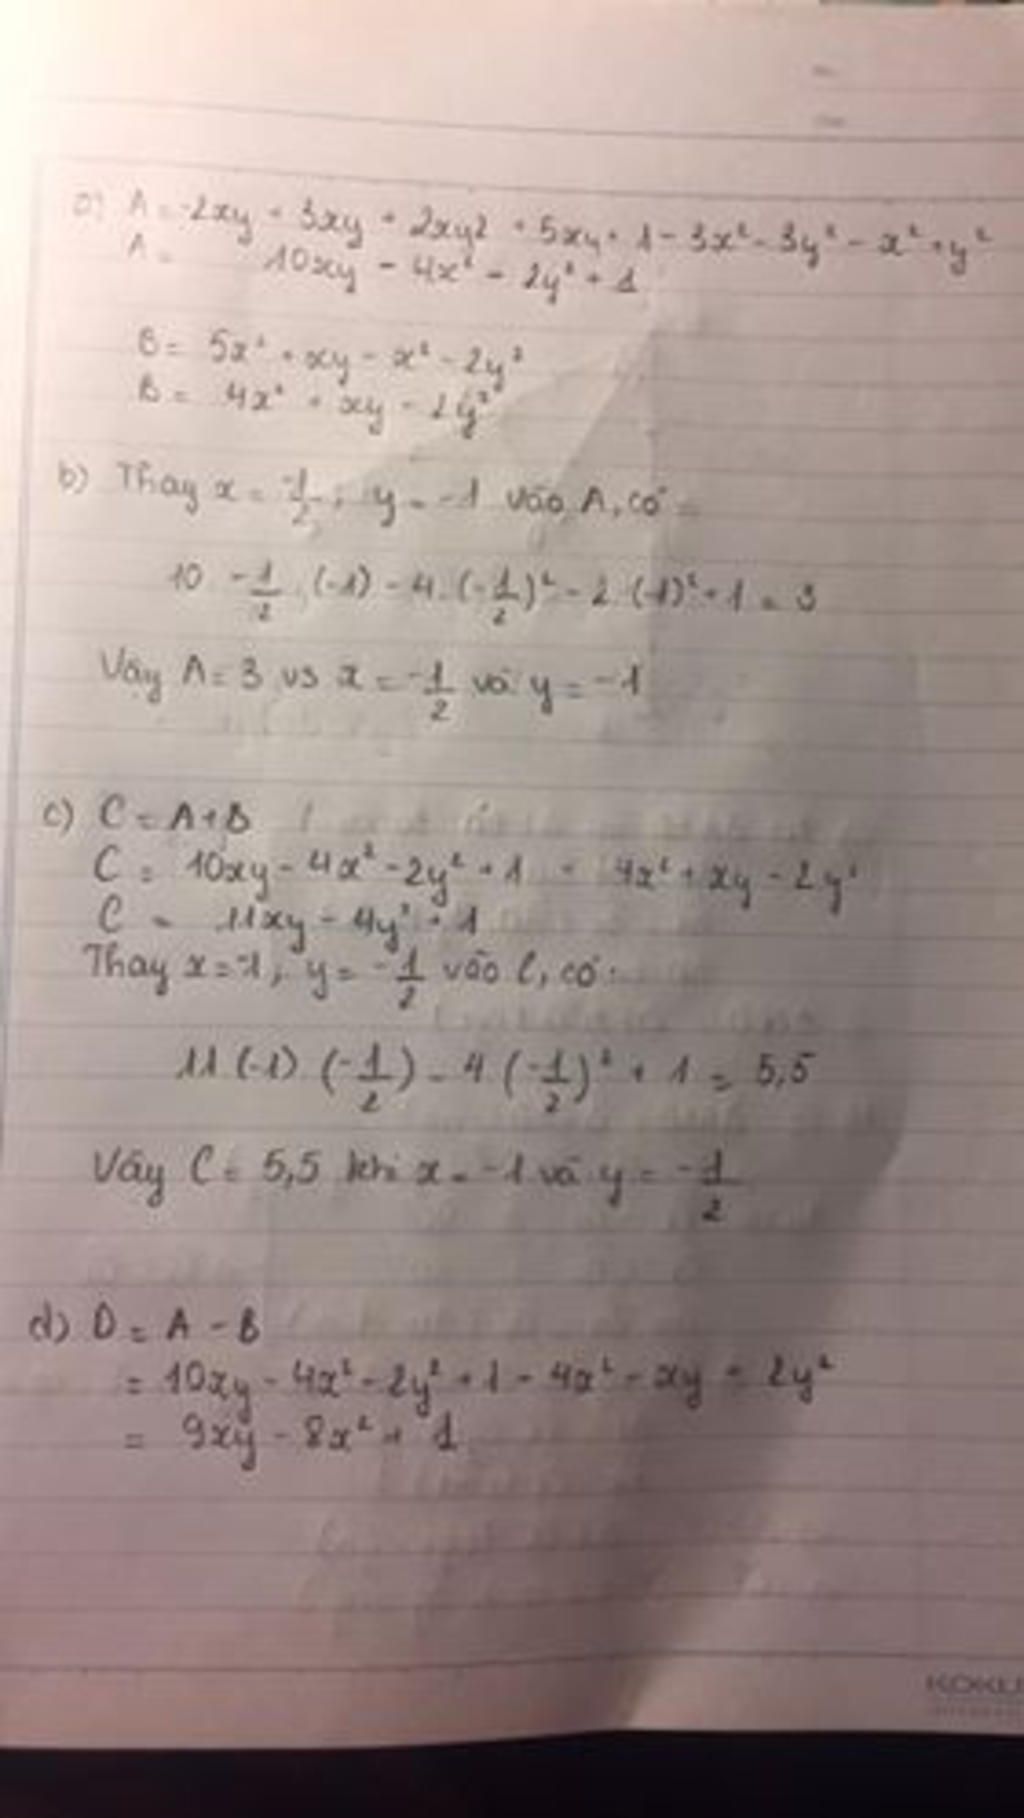 a) A = -2xy + 3xy + 2xy2 + 5xy + 1 - 3x² - 3y² - x² + y²
A = 10xy - 4x² - 2y² + 1
B = 5x² + xy - x² - 2y²
B = 4x² + xy - 2y²
b) Thay x = -1/2 ; y = -1 vào A, có =
10 -1/2 . (-1) - 4 . (-1/2)² - 2 (-1)² + 1 = 3
Vây A = 3 vs x = -1/2 và y = -1
c) C = A + B
C = 10xy - 4x² - 2y² + 1 + 4x² + xy - 2y²
C = 11xy - 4y² + 1
Thay x = -1, y = -1/2 vào C, có :
11 (-1) (-1/2) - 4 (-1/2)² + 1 = 5,5
Vây C = 5,5 khi x = -1 và y = -1/2
d) D = A - B
= 10xy - 4x² - 2y² + 1 - 4x² - xy + 2y²
= 9xy - 8x² + 1